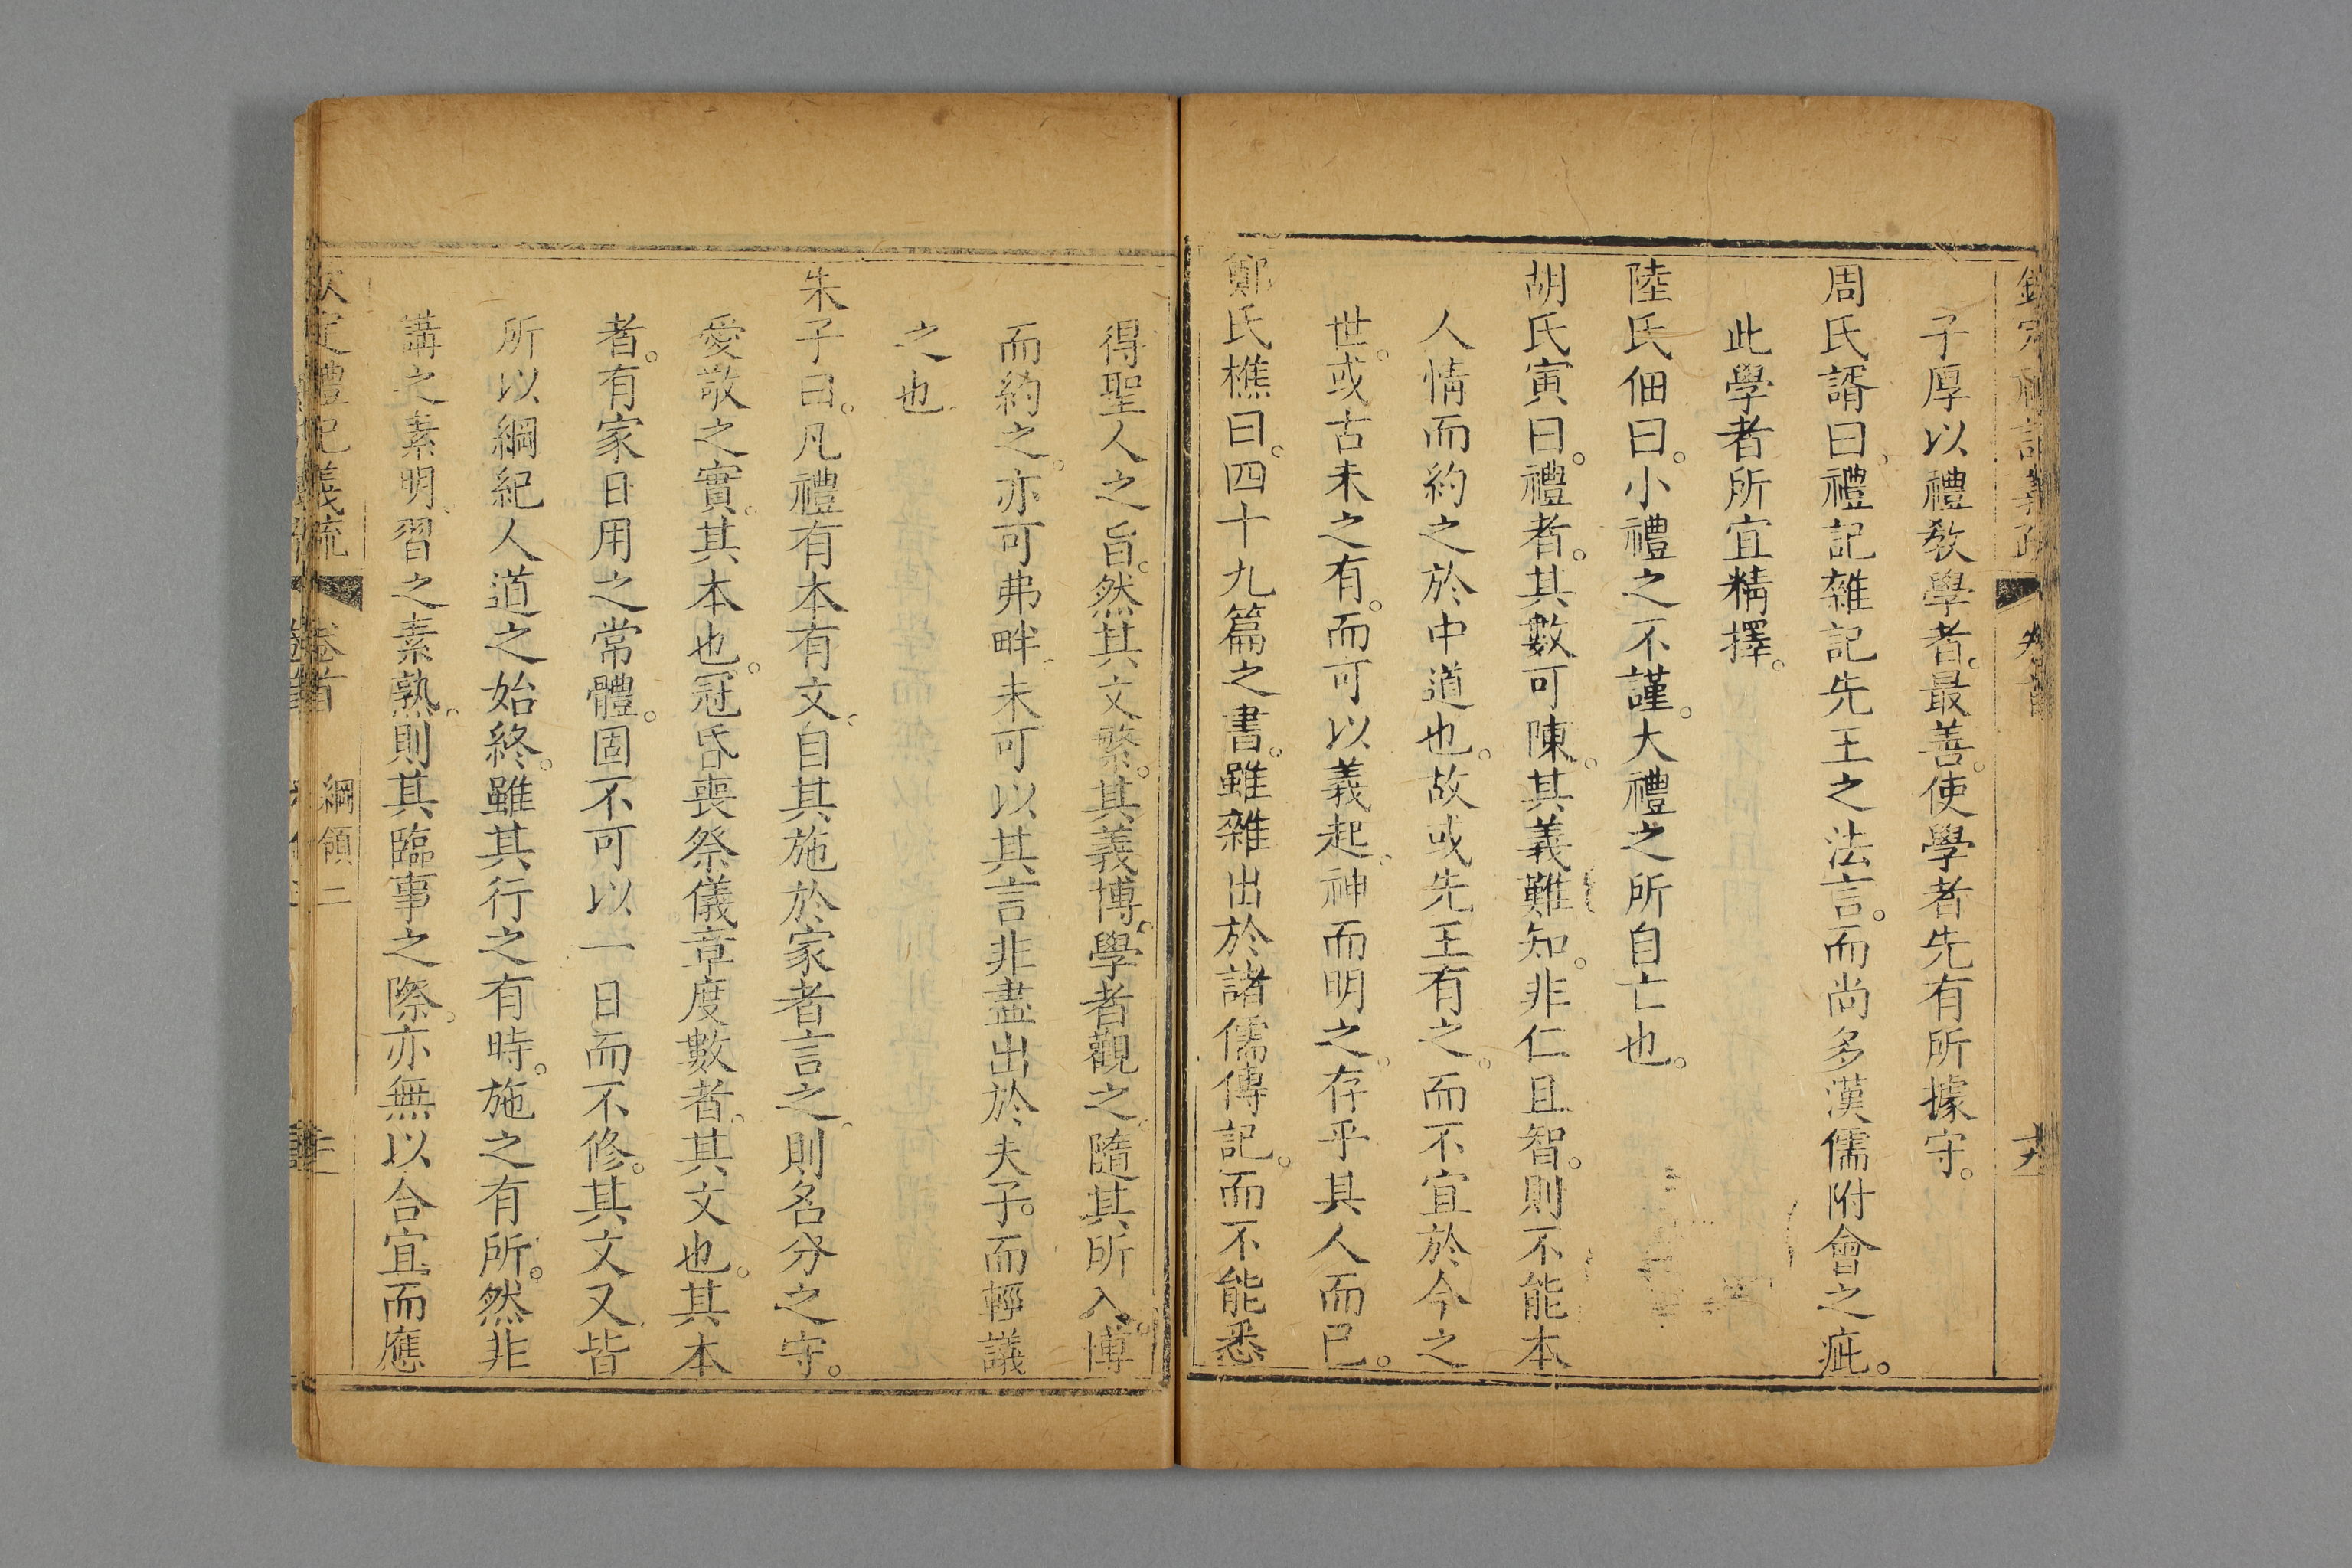 子厚以禮教學者。最善。使學者先有所據守。
周氏諝曰。禮記雜記先王之法言。而尚多漢儒附會之疵。
此學者所宜精擇。
陸氏佃曰。小禮之不謹。大禮之所自亡也。
胡氏寅曰。禮者。其數可陳。其義難知。非仁且智。則不能本
人情而約之於中道也。故或先王有之。而不宜於今之
世。或古未之有。而可以義起。神而明之。存乎其人而已。
鄭氏樵曰。四十九篇之書。雖雜出於諸儒傳記。而不能悉
得聖人之旨。然其文繁。其義博。學者觀之。隨其所入。博
而約之。亦可弗畔。未可以其言非盡出於夫子。而輕議
之也
朱子曰。凡禮有本有文。自其施於家者言之。則名分之守。
愛敬之實。其本也。冠昏喪祭儀章度數者。其文也。其本
者。有家日用之常體。固不可以一日而不修。其文又皆
所以綱紀人道之始終。雖其行之有時。施之有所。然非
講之素明。習之素熟。則其臨事之際。亦無以合宜而應
欽定禮記義疏 卷首 綱領二